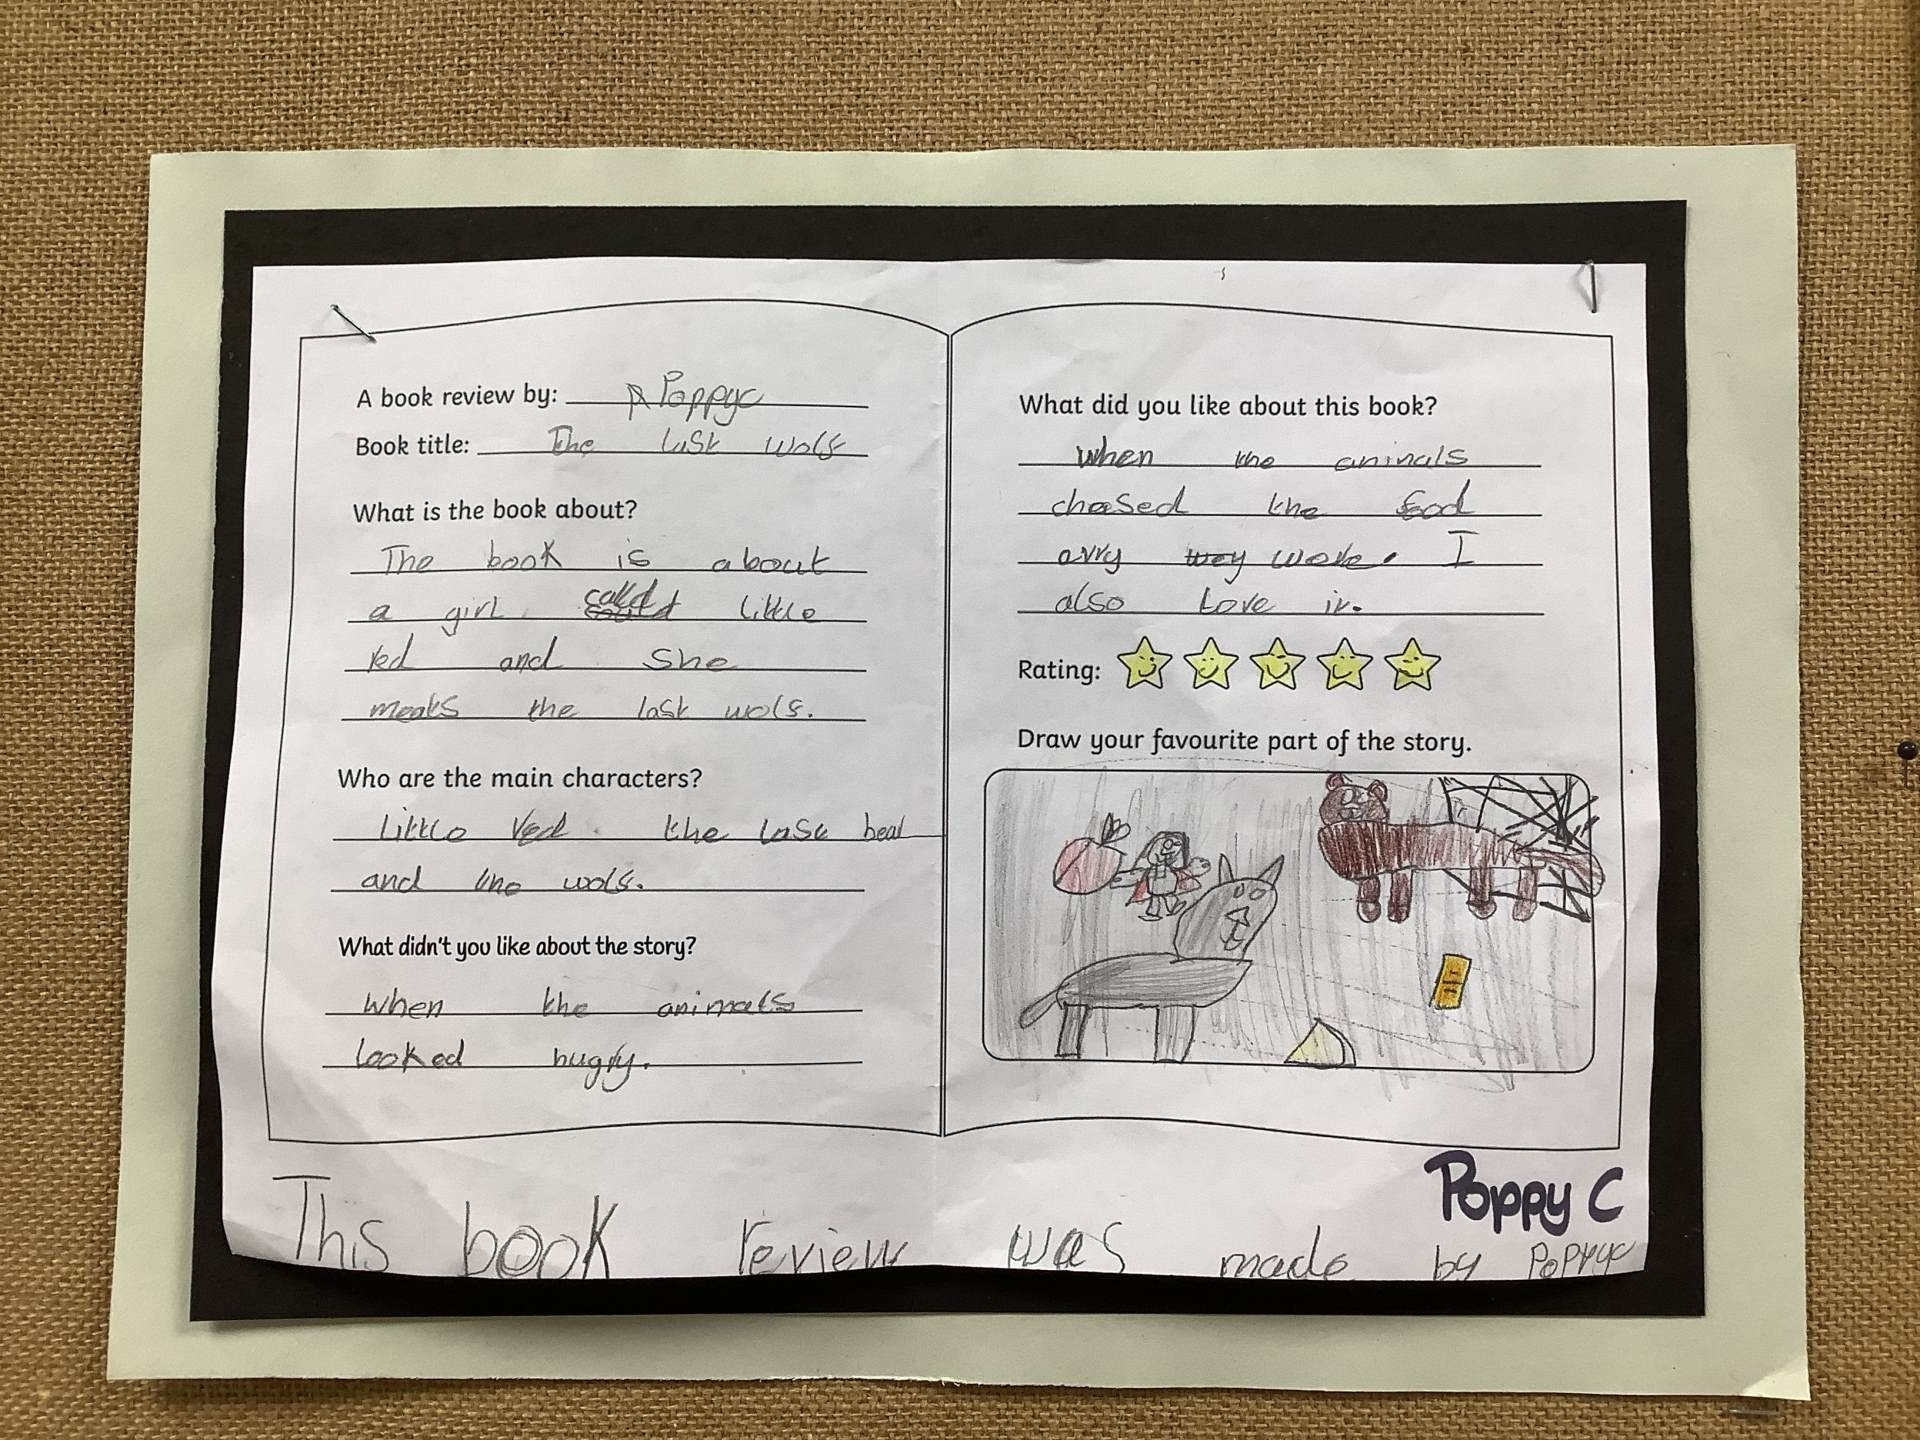 A book review by: Poppyc
Book title: The last wolf
What is the book about?
The book is about
a girl calld little
red and she
meats the last wolf.
Who are the main characters?
little red the last bear
and the wolf.
What didn't you like about the story?
when the animals
looked hugry.
What did you like about this book?
when the animals
chased the food
arry woke. I
also Love it.
Rating:
Draw your favourite part of the story.
Poppy C
This book review was made by Poppyc